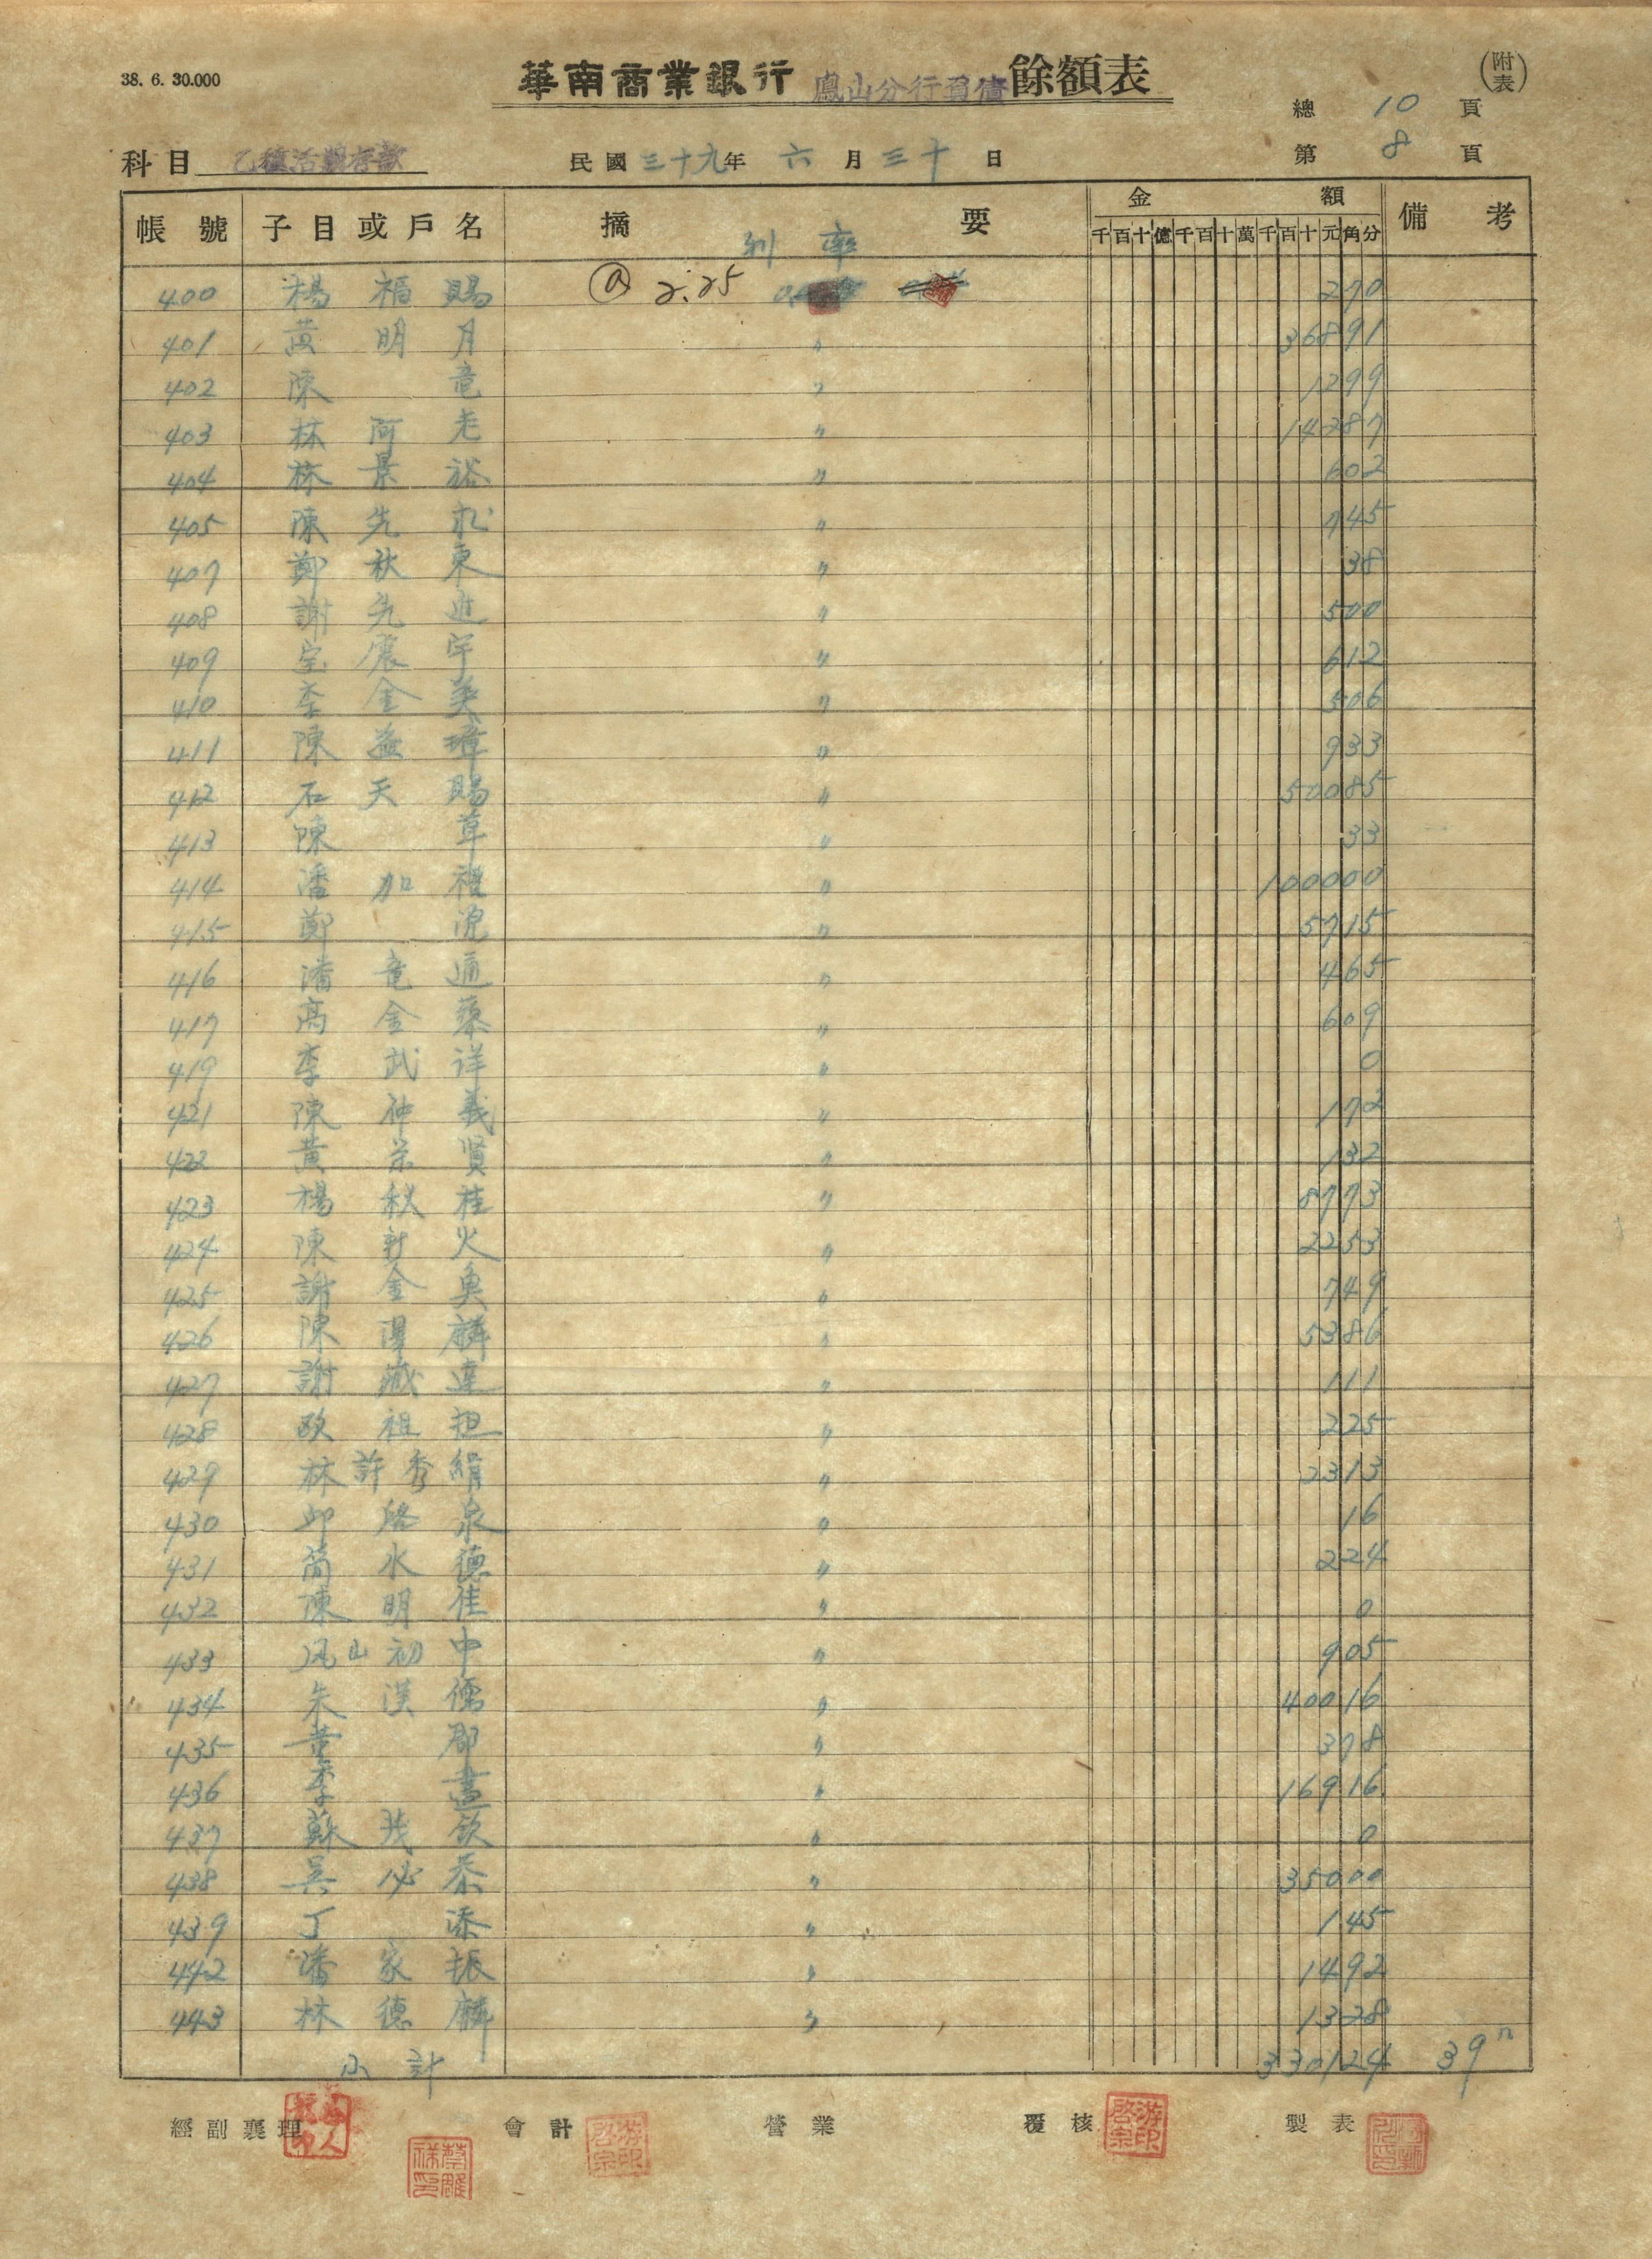 38. 6. 30.000
華南商業銀行 鳳山分行負債 餘額表
(附表)
總 10 頁
第 8 頁
科目 乙種活期存款
民國 三十九年 六 月 三十 日
帳號 子目或戶名 摘要 金額 備考
千百十億千百十萬千百十元角分
利率
400 楊福賜 @ 2.25 270
401 黃明月 〃 36891
402 陳竜 〃 1299
403 林阿老 〃 14287
404 林景裕 〃 602
405 陳先松 〃 745
407 鄭秋東 〃 38
408 謝先進 〃 500
409 震宇 〃 612
410 李金美 〃 506
411 陳益璋 〃 933
412 石天賜 〃 50085
413 陳草 〃 33
414 潘加禮 〃 100000
415 鄭 〃 5715
416 潘竜通 〃 465
417 高金藤 〃 609
419 李武祥 〃 0
421 陳仲義 〃 172
422 黃榮賢 〃 132
423 楊秋桂 〃 8773
424 陳新火 〃 2253
425 謝金魚 〃 749
426 陳陽麟 〃 5386
427 謝藏達 〃 111
428 歐祖担 〃 225
429 林許秀絹 〃 2313
430 邱泉 〃 16
431 簡水德 〃 224
432 陳明佳 〃 0
433 凤山初中 〃 905
434 朱漢儒 〃 40016
435 黃郡 〃 378
436 李盡 〃 16916
437 蘇茂欽 〃 0
438 吳必恭 〃 35000
439 丁添 〃 145
442 潘家振 〃 1492
443 林德麟 〃 1328
小計 330124 39
經副襄理 會計 營業 覆核 製表
蔡雕祥印 游印啓宗 游印啓宗